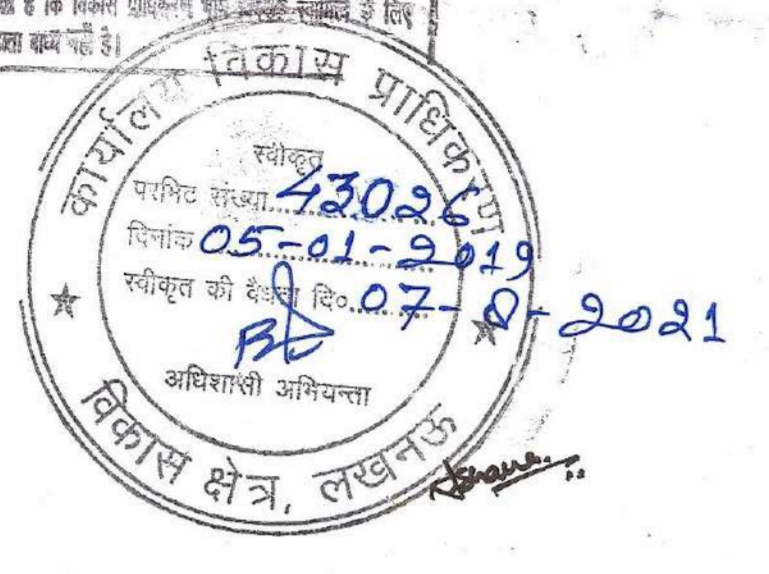 है कि विकास प्राधिकरण के लिए
बाध्य नहीं है।
कार्यालय विकास प्राधिकरण
स्वीकृत
परमिट संख्या 43026
दिनांक 05-01-2019
स्वीकृत की वैधता दि० 07-8-2021
अधिशासी अभियन्ता
विकास क्षेत्र, लखनऊ